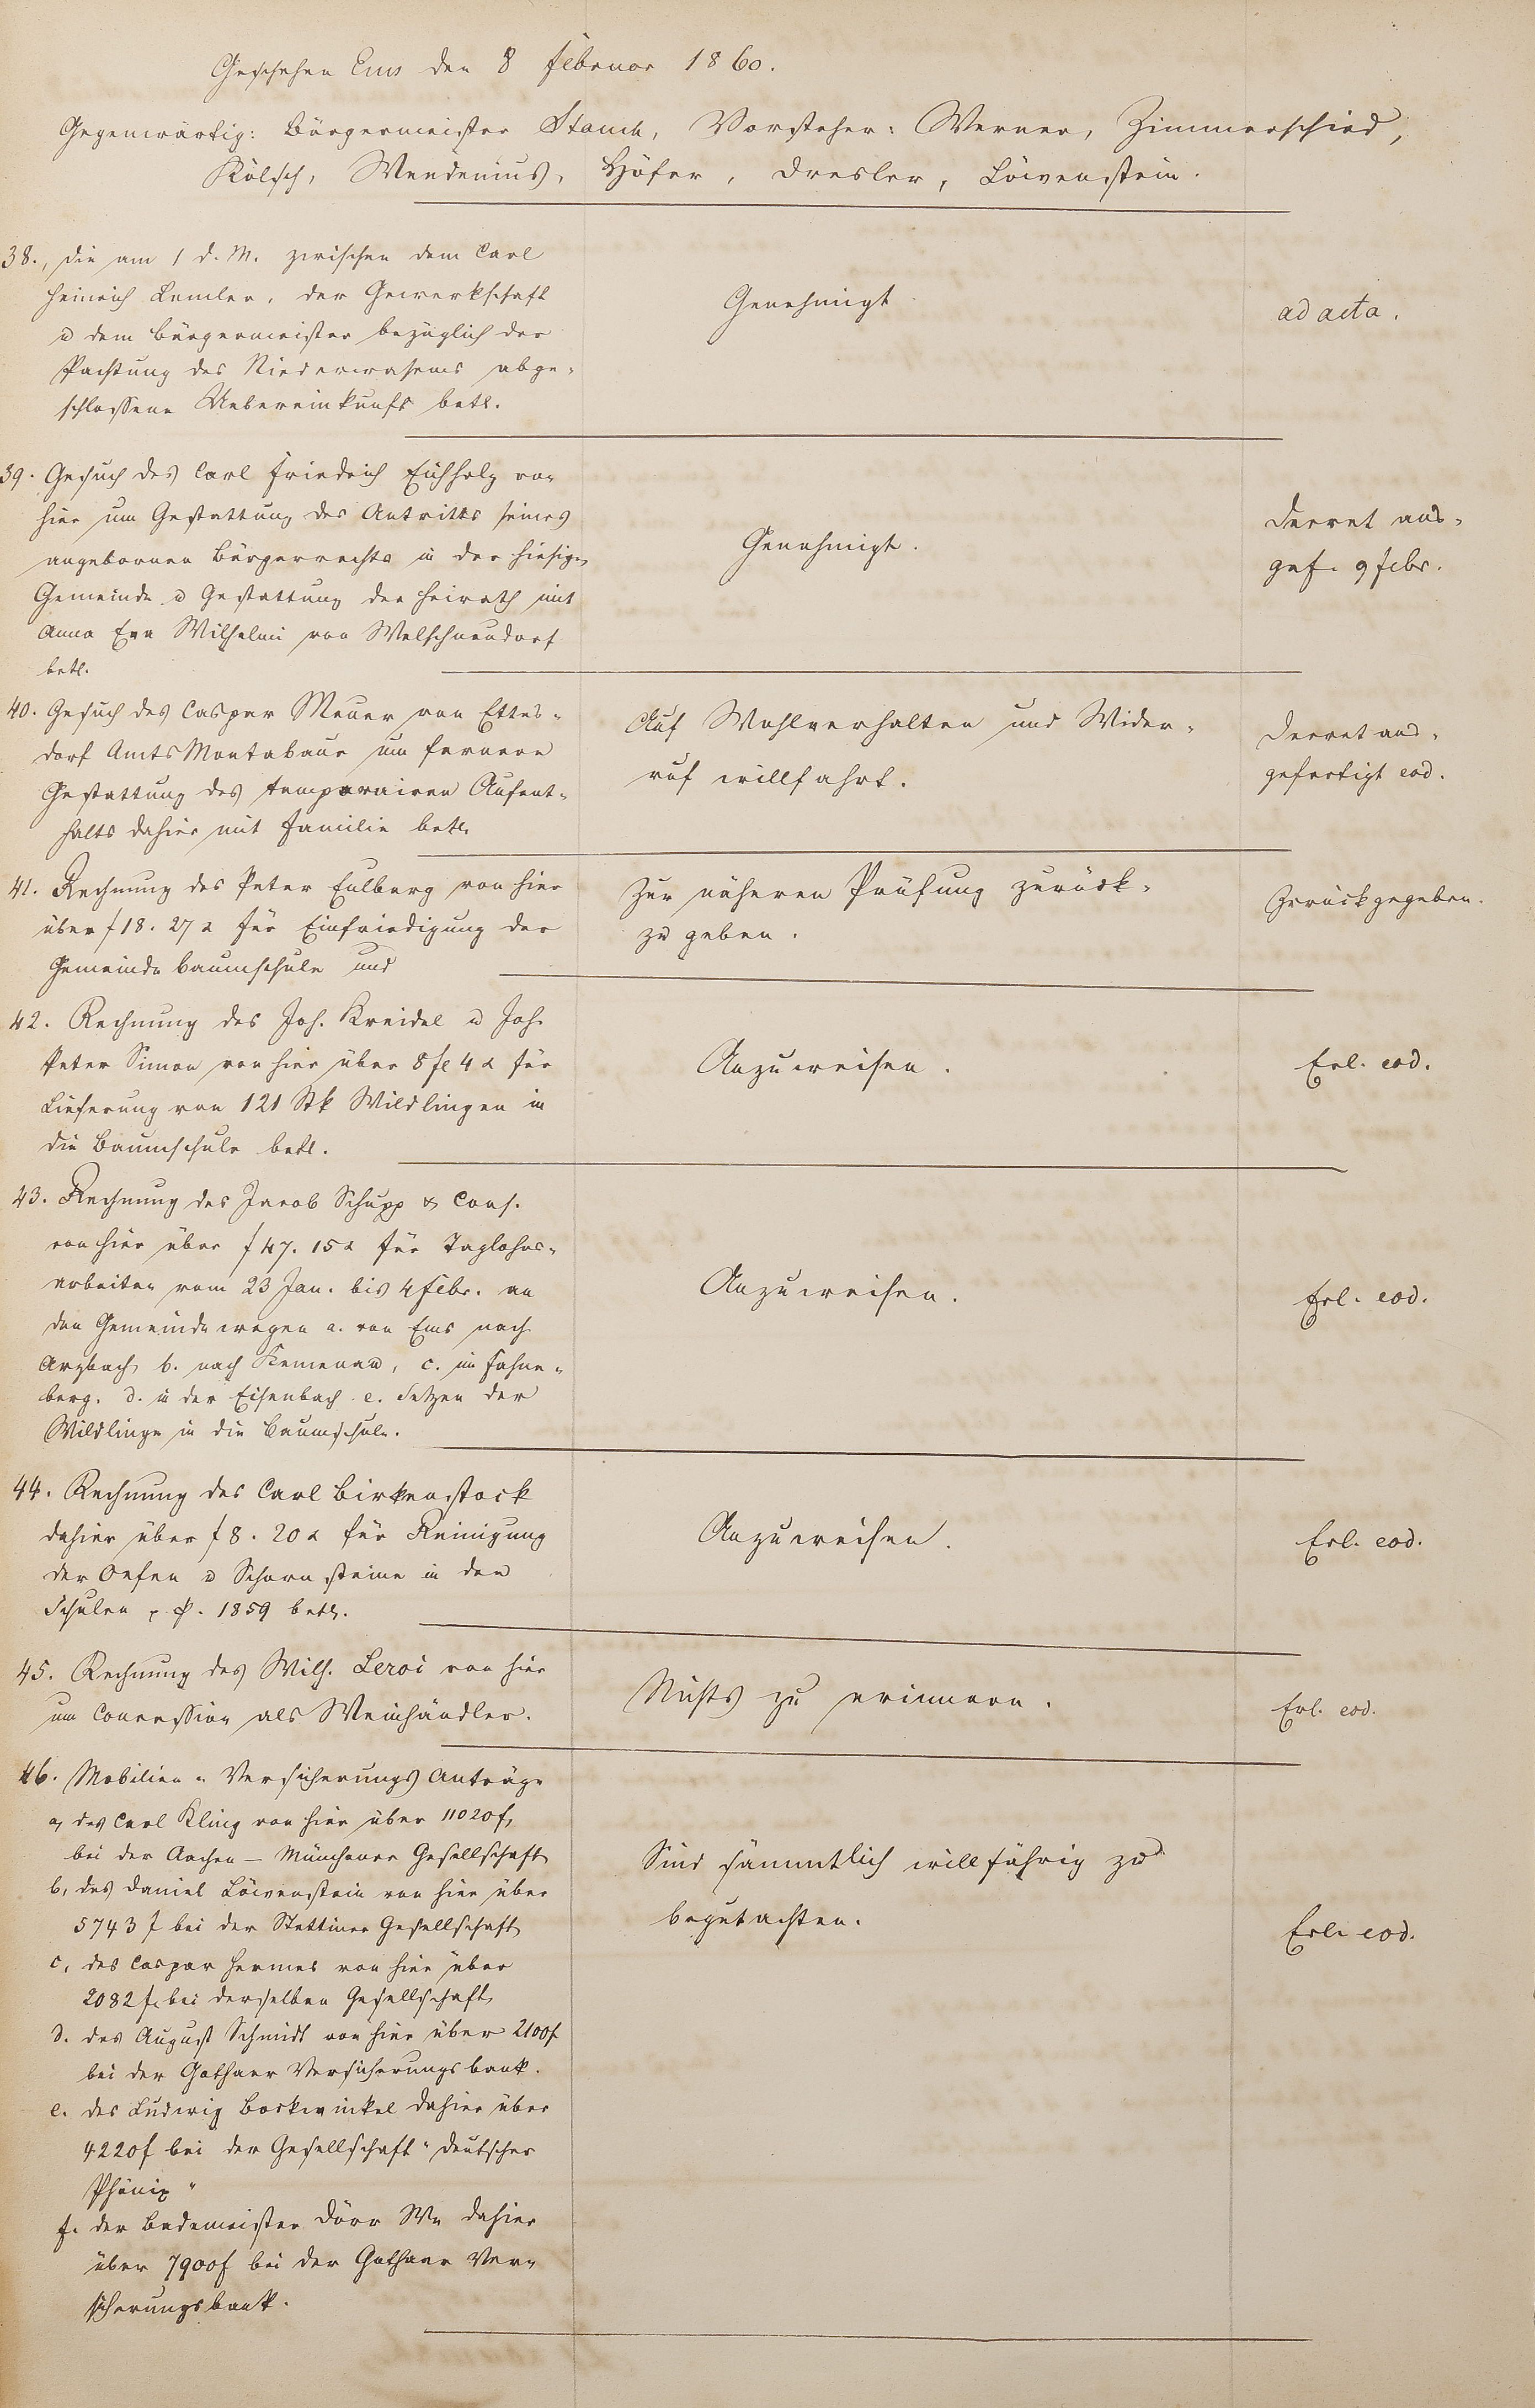 Geschehen Ems den 8 Februar 1860.
Gegenwärtig: Bürgermeister Stauch, Vorsteher: Werner, Zimmerschied,
Kölsch, Wendenius, Höfer, Dresler, Löwenstein.
38., Die am 1 d. M. zwischen dem Carl
Heinrich Lemler, der Gewerkschaft
u dem Bürgermeister bezüglich der
Pachtung des Niederwasens abge-
schlossene Uebereinkunft betr.
Genehmigt
ad acta.
39. Gesuch des Carl Friedrich Eichholz von
hier um Gestattung des Antritts seines
angebornen Bürgerrechts in der hiesigen
Gemeinde u Gestattung der Heirath mit
Anna Eva Wilhelmi von Welschneudorf
betr.
Genehmigt.
Decret aus-
gef. 9 Febr.
40. Gesuch des Caspar Meuer von Etters-
dorf Amts Montabaur um fernere
Gestattung des temporairen Aufent-
halts dahier mit Familie betr.
Auf Wohlverhalten und Wider-
ruf willfahrt.
Decret aus-
gefertigt eod.
41. Rechnung des Peter Eulberg von hier
über f 18. 27 x für Einfriedigung der
Gemeinde Baumschule und
Zur näheren Prüfung zurück-
zu geben.
Zurückgegeben.
42. Rechnung des Joh. Kreidel u Joh.
Peter Simon von hier über 8 fl 4 x für
Lieferung von 121 Stk Wildlingen in
die Baumschule betr.
Anzuweisen.
Erl. eod.
43. Rechnung des Jacob Schupp & Cons.
von hier über f 47. 15 x für Taglohns-
arbeiten vom 23 Jan. bis 4 Febr. an
den Gemeindewegen a. von Ems nach
Arzbach, b. nach Kemenau, c. im Fahne-
berg. d. in der Eisenbach e. Setzen der
Wildlinge in die Baumschule.
Anzuweisen.
Erl. eod.
44. Rechnung des Carl Birkenstock
dahier über f 8. 20 x für Reinigung
der Oefen u Schornsteine in den
Schulen p. 1859 betr.
Anzuweisen.
Erl. eod.
45. Rechnung des Wilh. Leroi von hier
um Concession als Weinhändler.
Nichts zu erinnern.
Erl. eod.
46. Mobilien- Versicherungs Anträge
a, des Carl Kling von hier über 11020 f,
bei der Aachen – Münchener Gesellschaft,
b, des Daniel Löwenstein von hier über
5743 f bei der Stettiner Gesellschaft,
c, des Caspar Hermes von hier über
2082 f, bei derselben Gesellschaft,
d. des August Schmidt von hier über 2100 f
bei der Gothaer Versicherungsbank.
e. des Ludwig Borkewinkel dahier über
4220 f bei der Gesellschaft "Deutscher
Phönix"
f. der Bademeister Dörr We dahier
über 7900 f bei der Gothaer Ver-
sicherungsbank.
Sind sämmtlich willfährig zu
begutachten.
Erl. eod.